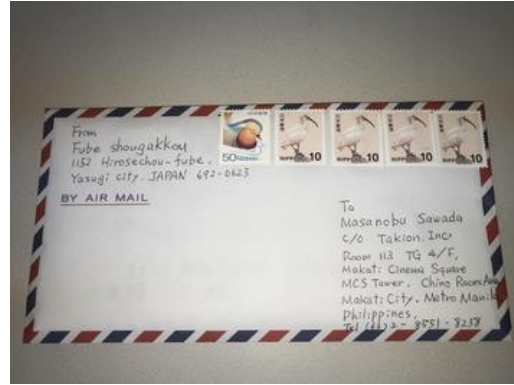 From
Fube shougakkou
1152 Hirosechou-fube,
Yasugi city JAPAN 692-0623
BY AIR MAIL
50
日本郵便
NIPPON 10
日本郵便
NIPPON 10
日本郵便
NIPPON 10
日本郵便
NIPPON 10
To
Masanobu Sawada
c/o Takion. Inc
Room 113 TG 4/F,
Makati Cinema Square
MCS Tower, Chino Roces Ave
Makati City, Metro Manila
Philippines,
Tel 2-8551-8238